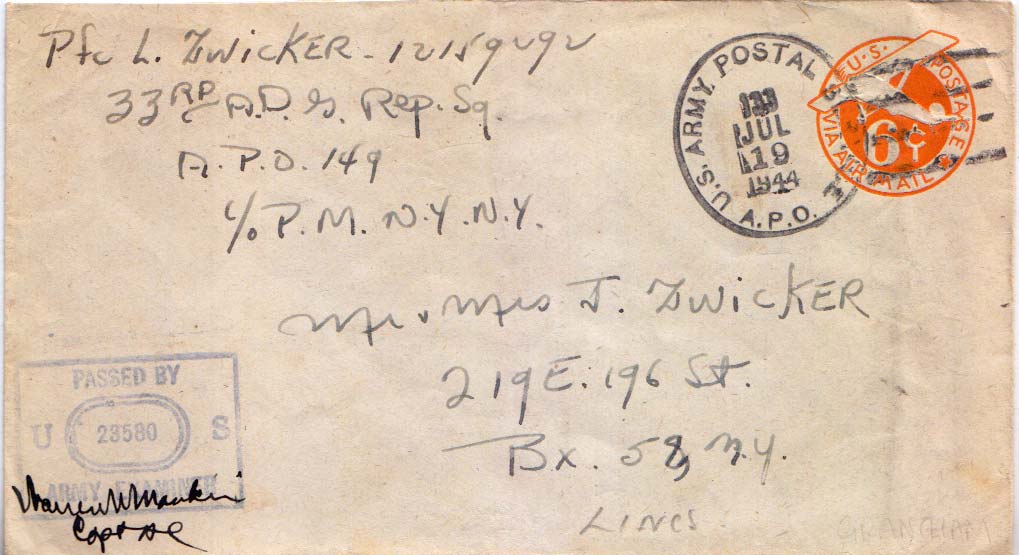 Pfc L. ZWICKER - 12159292
33RD A.D.G. Rep. Sq.
A.P.O. 149
c/o P.M. N.Y. N.Y.
U.S. ARMY POSTAL
A.P.O.
133
JUL
19
1944
U.S. POSTAGE
6¢
VIA AIR MAIL
Mr & Mrs J. ZWICKER
219 E. 196 St.
Bx. 58, N.Y.
LINCS
PASSED BY
U 23580 S
ARMY EXAMINER
Warren W
Capt AC